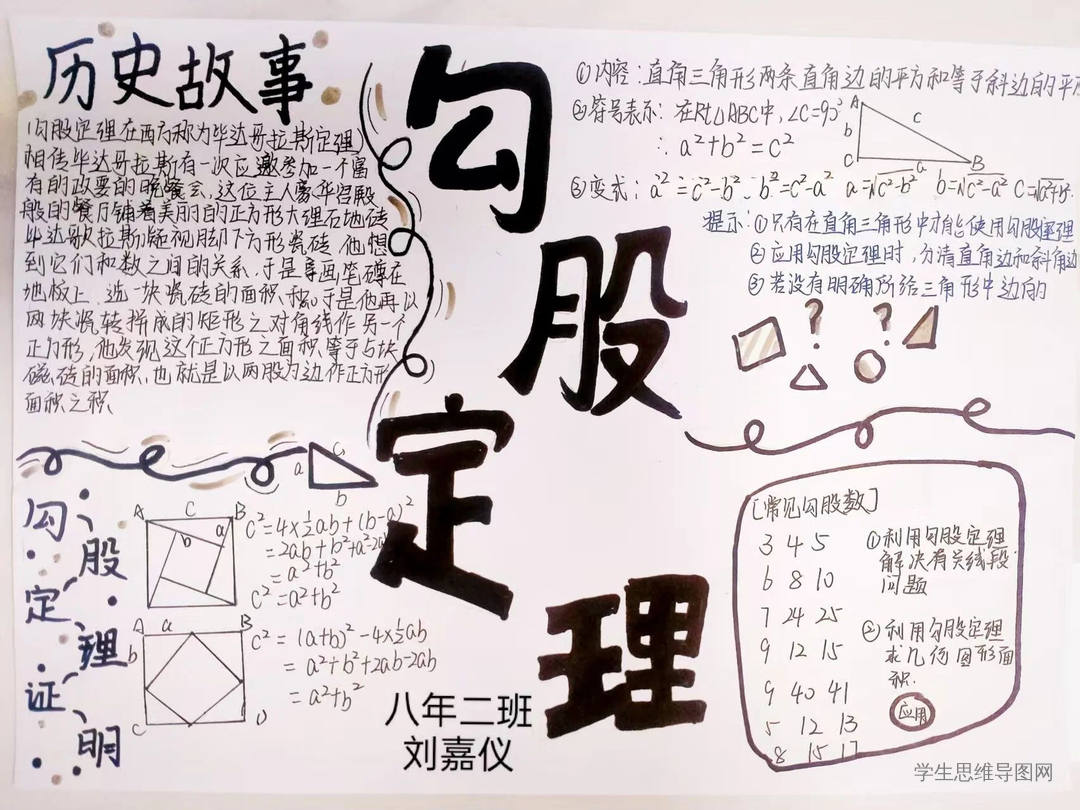 历史故事
(勾股定理在西方称为毕达哥拉斯定理)
相传毕达哥拉斯有一次应邀参加一个富
有的政要的晚餐会,这位主人豪华宫殿
般的餐厅铺着美丽的正方形大理石地砖
毕达哥拉斯凝视脚下方形瓷砖 他想
到它们和数之间的关系,于是拿画笔蹲在
地板上 选一块瓷砖的面积 于是他再以
两块瓷转拼成的矩形之对角线作另一个
正方形,他发现这个正方形之面积等于5块
磁砖的面积,也就是以两股为边作正方形
面积之积
勾股定理
①内容:直角三角形两条直角边的平方和等于斜边的平
②符号表示:在Rt△ABC中,∠C=90°
∴a²+b²=c²
A
b
c
C
a
B
③变式:a²=c²-b² b²=c²-a² a=√c²-b² b=√c²-a² c=√a²+b²
提示:①只有在直角三角形中才能使用勾股定理
②应用勾股定理时,分清直角边和斜角边
③若没有明确所给三角形中边的
? ?
a
c
b
勾股定理证明
A C B
b a
c²=4×½ab+(b-a)²
=2ab+b²+a²-2a
=a²+b²
c²=a²+b²
A a B
b
C D
c²=(a+b)²-4×½ab
=a²+b²+2ab-2ab
=a²+b²
八年二班
刘嘉仪
[常见勾股数]
3 4 5
6 8 10
7 24 25
9 12 15
9 40 41
5 12 13
8 15 17
①利用勾股定理
解决有关线段
问题
②利用勾股定理
求几何图形面
积.
应用
学生思维导图网